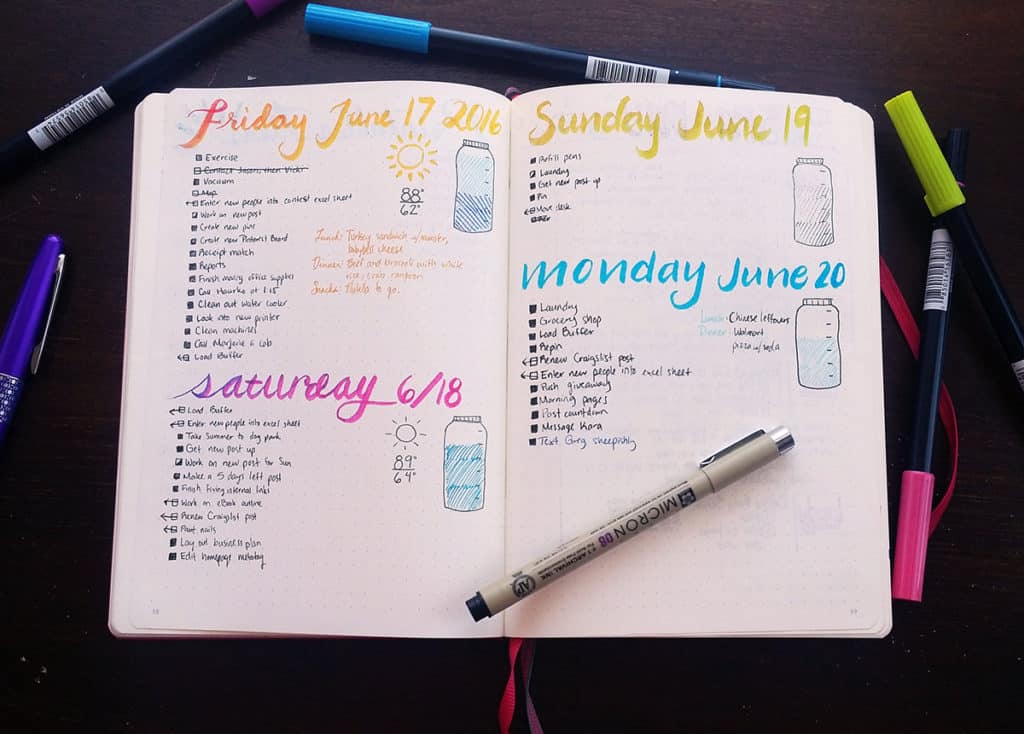 Friday June 17 2016
Exercise
Contact Jason, then Vicki
Vacuum
Mop
Enter new people into contest excel sheet
Work on new post
Create new pins
Create new Pinterest Board
Receipt match
Reports
Finish moving office supplies
Call Hawks at 1:15
Clean out water cooler
Look into new printer
Clean machines
Call Marjorie & Cob
Load Buffer
88°
62°
Lunch: Turkey sandwich w/ munster,
babybel cheese
Dinner: Beef and broccoli with white
rice, crab rangoon
Snacks: Hotels to go.
Saturday 6/18
Load Buffer
Enter new people into excel sheet
Take Summer to dog park
Get new post up
Work on new post for Sun
Make a 5 days left post
Finish fixing internal links
Work on eBook outline
Renew Craigslist post
Paint nails
Lay out business plan
Edit homepage metatag
89°
64°
58
Sunday June 19
Refill pens
Laundry
Get new post up
Pin
Move desk
Monday June 20
Laundry
Grocery shop
Load Buffer
Repin
Renew Craigslist post
Enter new people into excel sheet
Push giveaway
Morning pages
Post countdown
Message Kara
Text Greg sheepishly
Lunch: Chinese leftovers
Dinner: Walmart
pizza w/ soda
59
MICRON 08
ARCHIVAL INK
AP